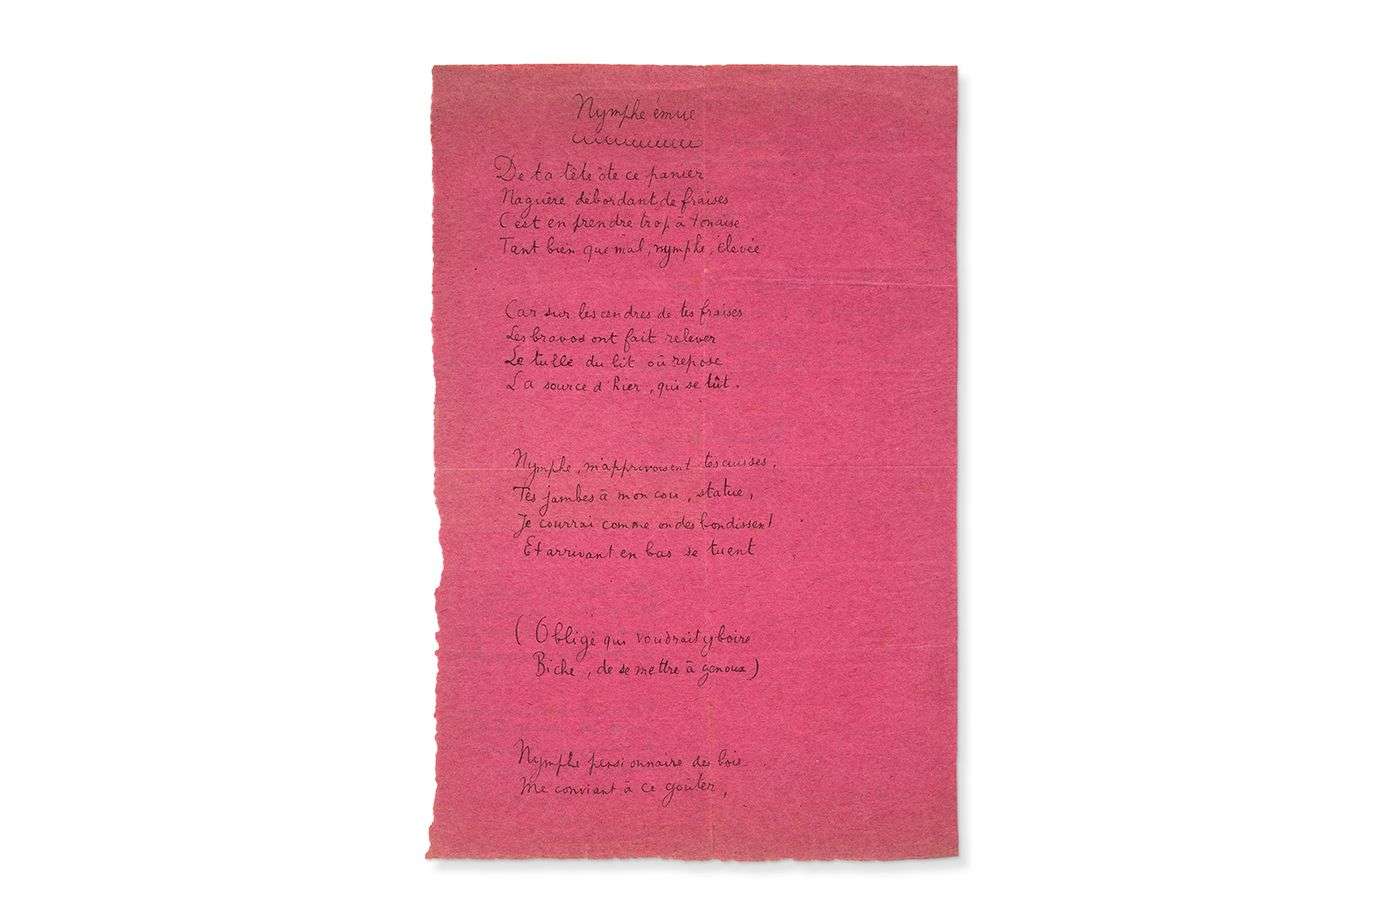 Nymphe émue
De ta tête ôte ce panier
Naguère débordant de fraises
C'est en prendre trop à tonaise
Tant bien que mal, nymphe, élevée
Car sur les cendres de tes fraises
Les bravos ont fait relever
Le tulle du lit où repose
La source d'hier, qui se tût.
Nymphe, m'apprivoisent tes cuisses,
Tes jambes à mon cou, statue,
Je courrai comme ondes bondissent
Et arrivant en bas se tuent
(Obligé qui voudrait y boire
Biche, de se mettre à genoux)
Nymphe pensionnaire des bois
Me conviant à ce goûter,